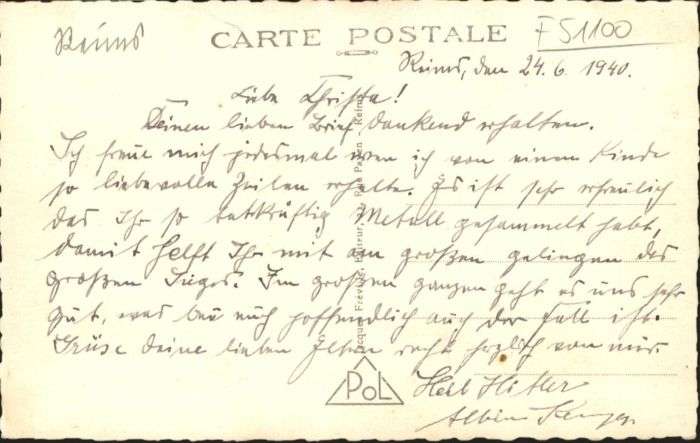 Reims
CARTE POSTALE
F 51100
Reims, den 24.6.1940.
Liebe Christa!
Deinen lieben Brief dankend erhalten.
Ich freue mich jedesmal wen ich von einem Kinde
so liebevolle Zeilen erhalte. Es ist sehr erfreulich
das Ihr so tatkräftig Metall gesammelt habt,
damit helft Ihr mit am großen gelingen des
großen Sieges. Im großen ganzen geht es uns sehr
gut, was bei euch hoffendlich auch der Fall ist.
Grüse deine lieben Eltern recht herzlich von mir.
Heil Hitler
Albin
Jacques Fréville, Éditeur, Reims
POL